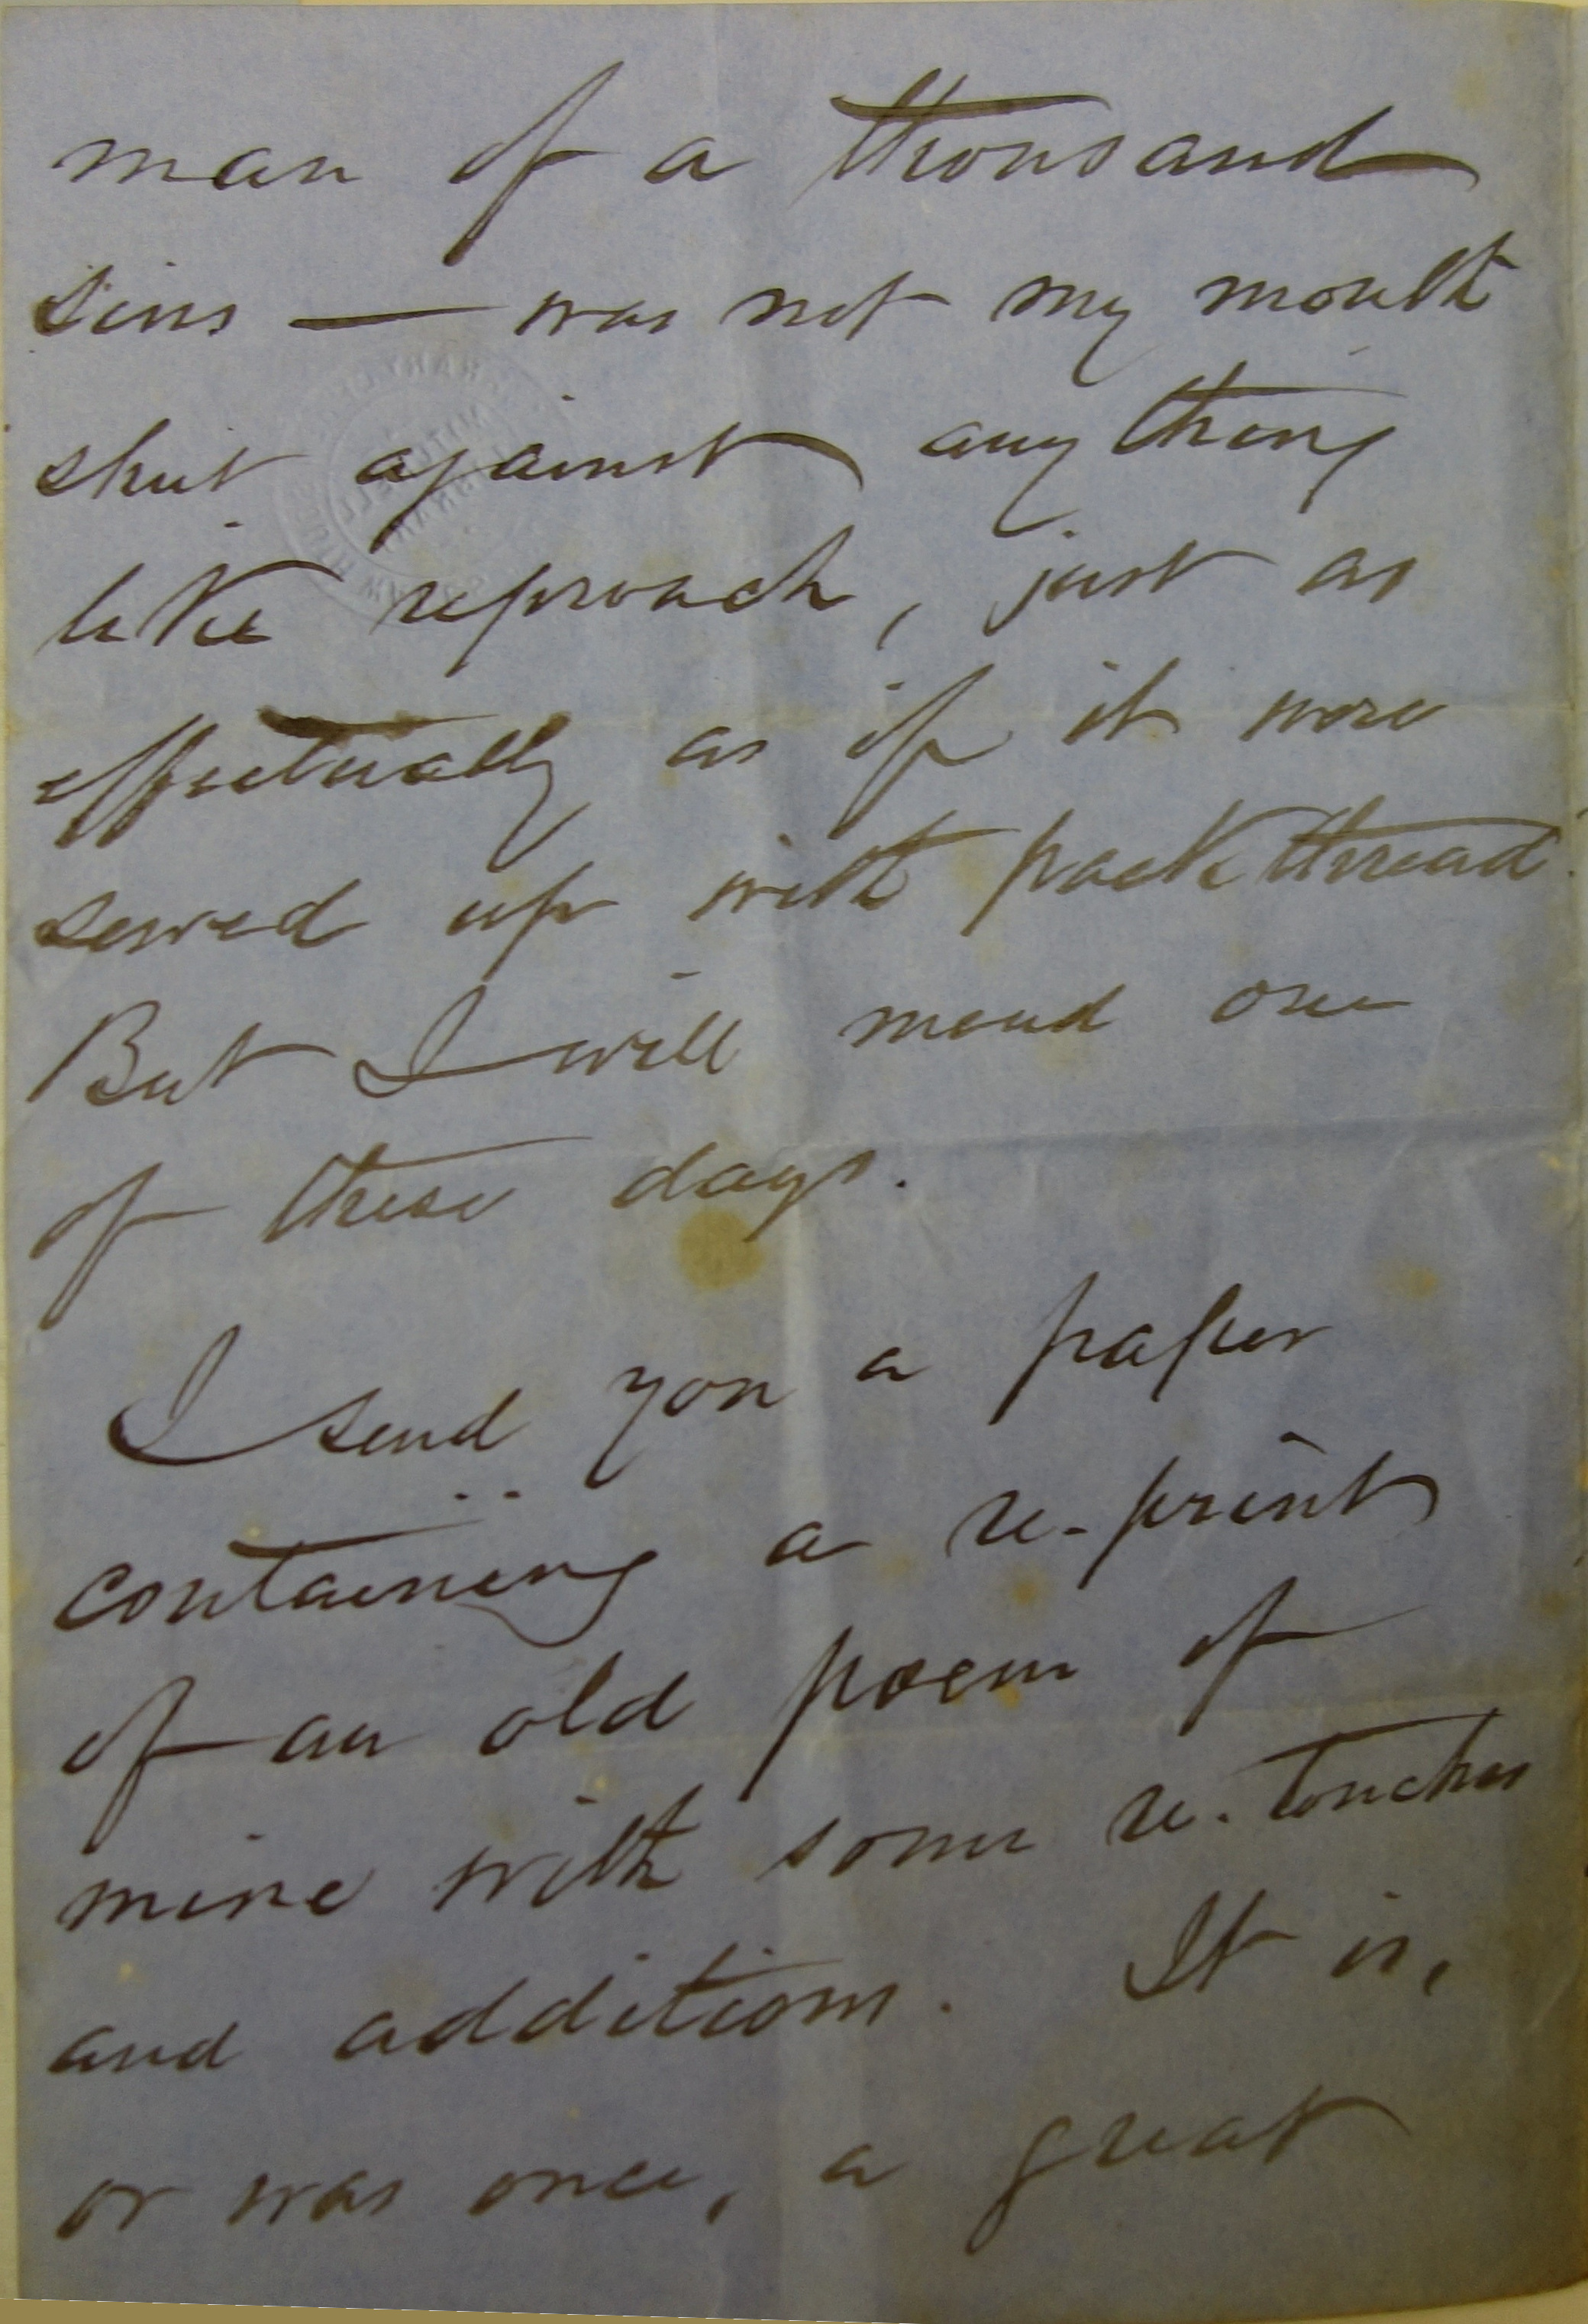 man of a thousand
sins — was not my mouth
shut against any thing
like reproach, just as
effectually as if it were
sewed up with pack thread.
But I will mend one
of these days.
I send you a paper
containing a re-print
of an old poem of
mine with some re-touches
and additions. It is,
or was once, a great